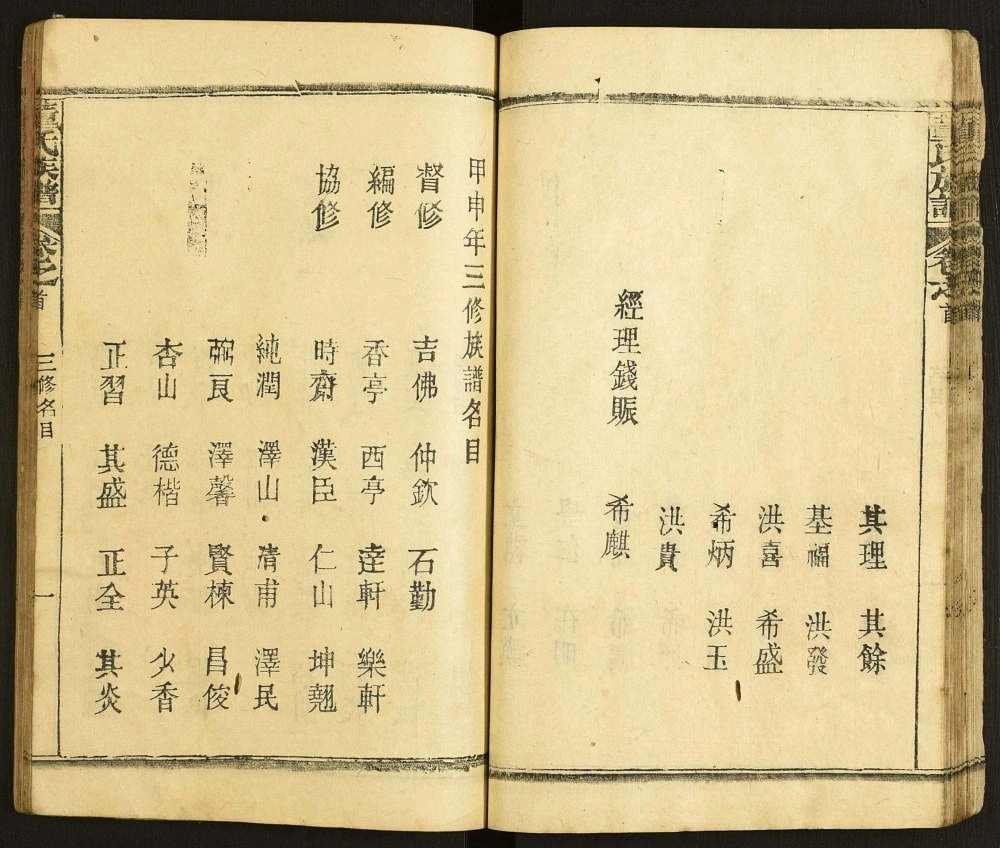 其理 其餘
基福 洪發
洪喜 希盛
希炳 洪玉
洪貴
經理錢賬 希麒
甲申年三修族譜名目
督修 吉佛 仲欽 石勤
編修 香亭 西亭 逵軒 樂軒
協修 時齋 漢臣 仁山 坤翹
純潤 澤山 清甫 澤民
弼良 澤馨 賢棟 昌俊
杏山 德楷 子英 少香
正習 其盛 正全 其炎
董氏族譜 卷之首 三修名目 一